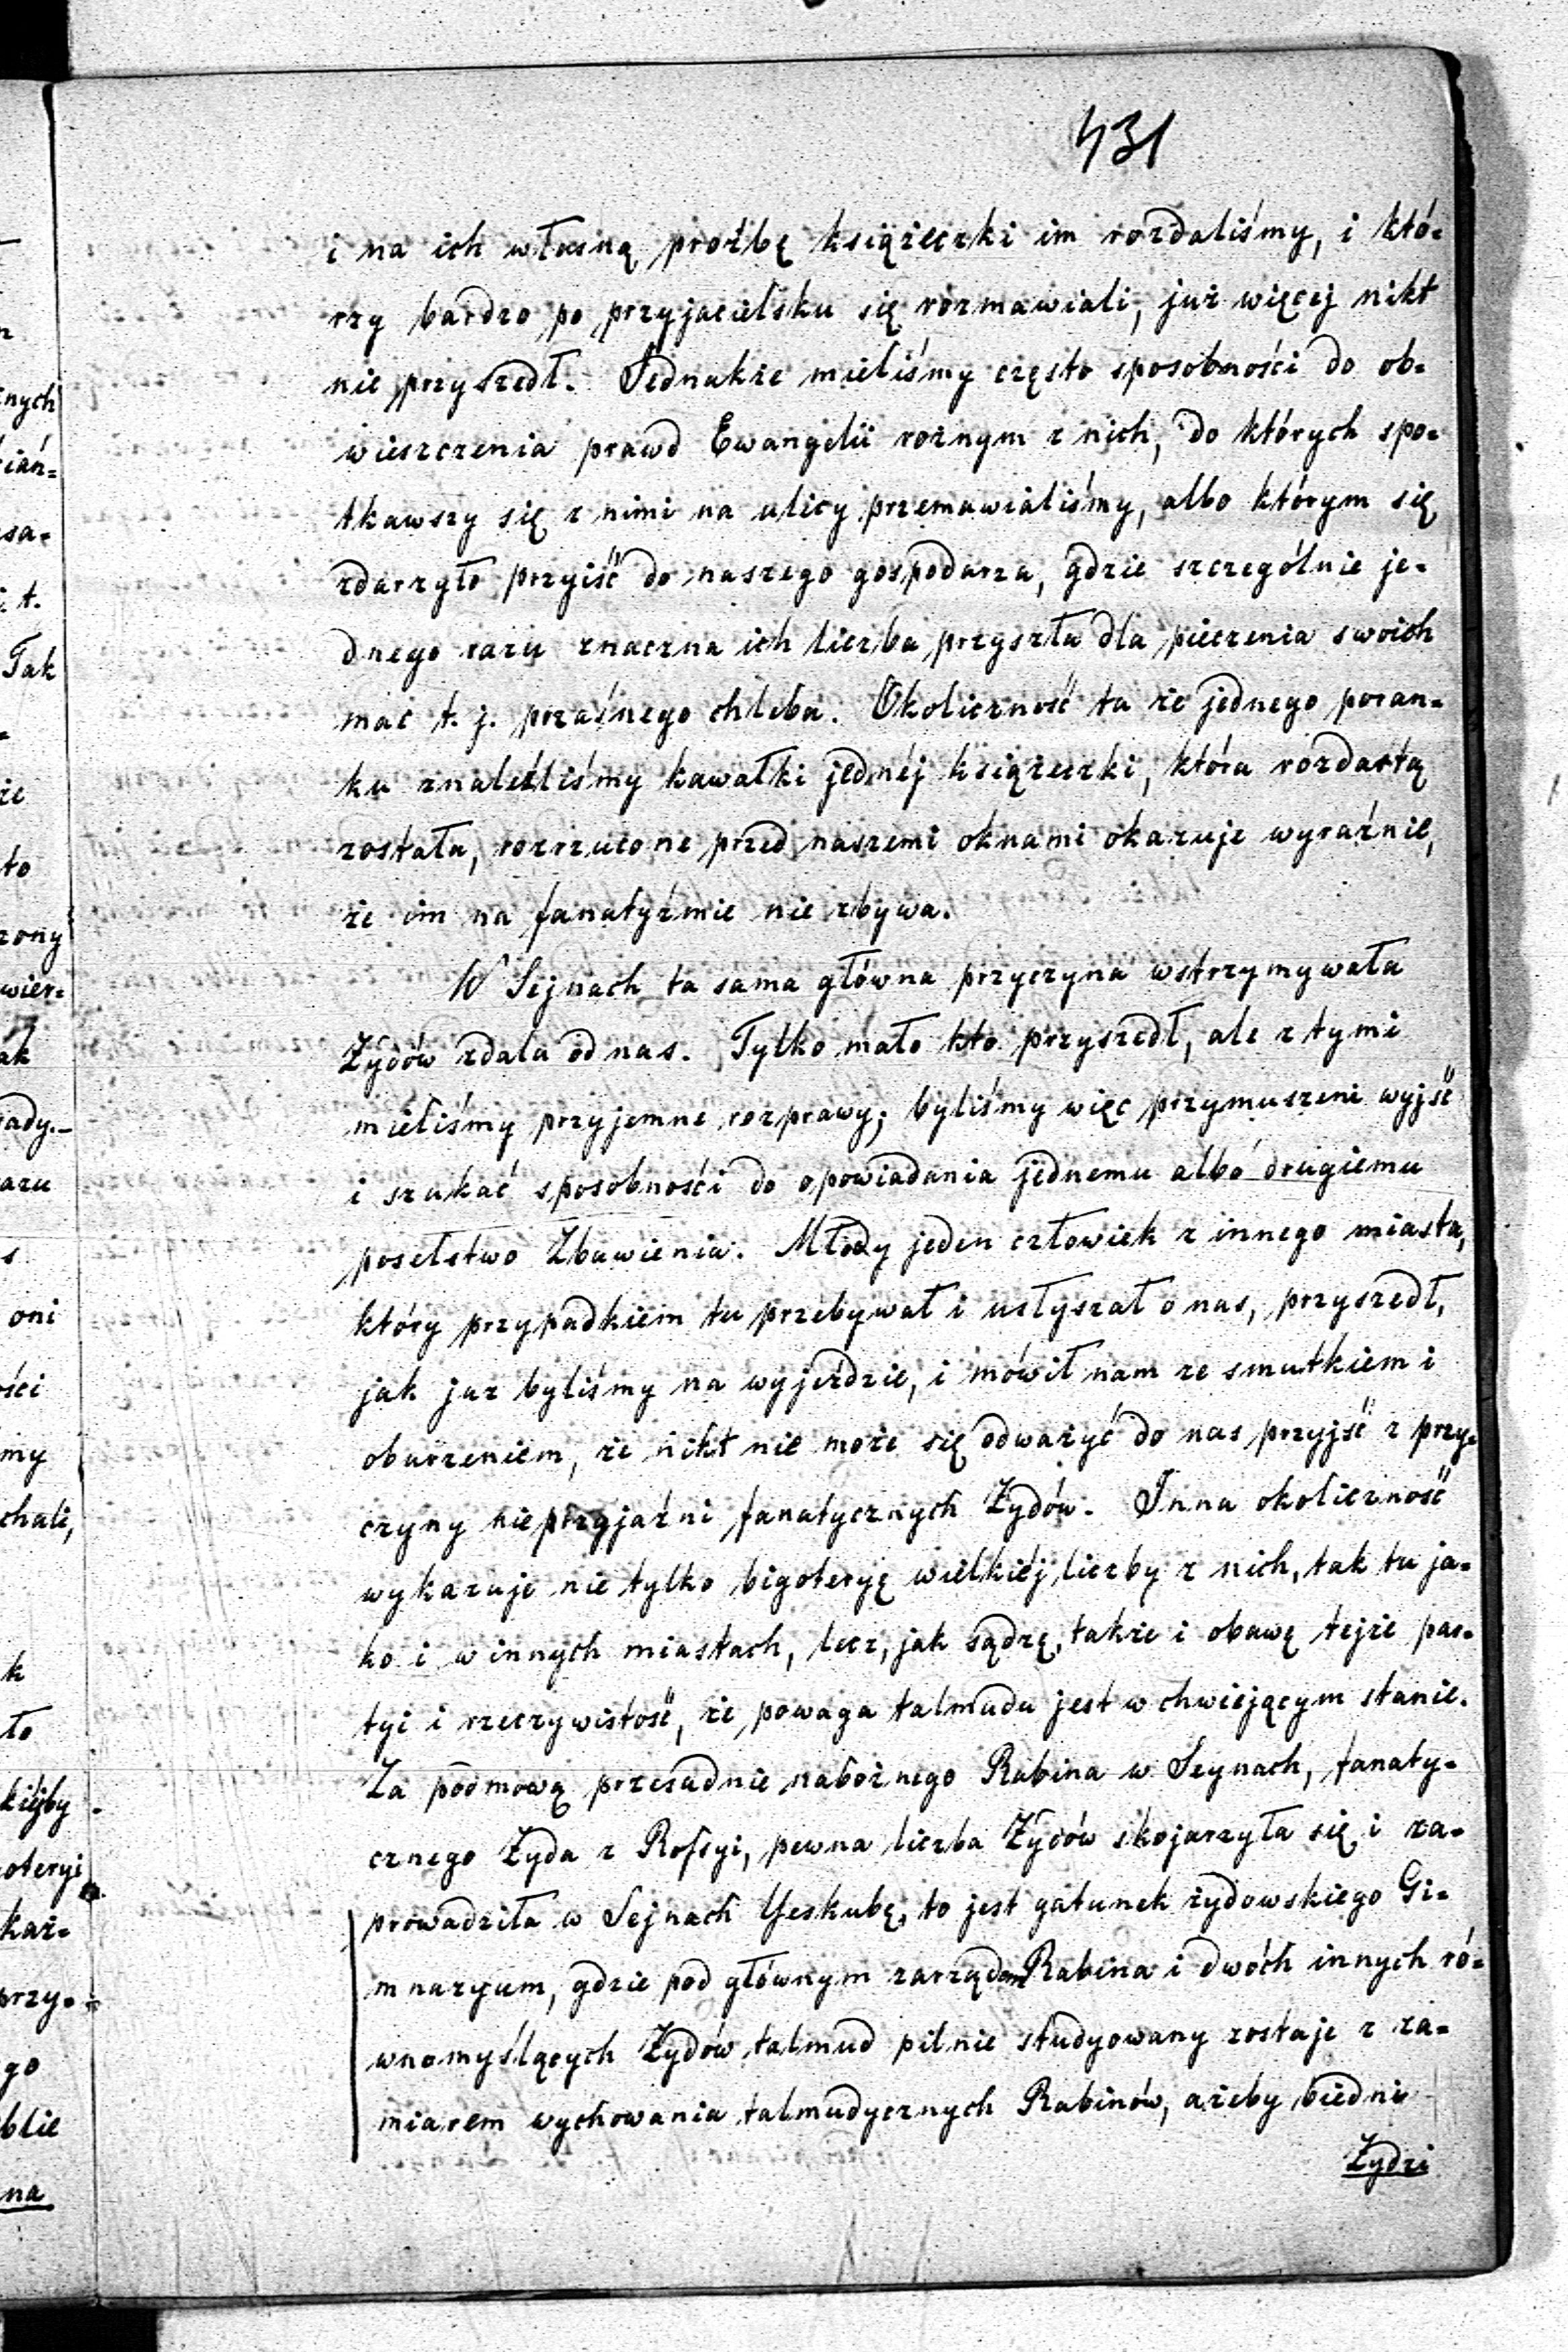 431
i na ich własną proźbę książeczki im rozdaliśmy, i któ-
rzy bardzo po przyjacielsku się rozmawiali, już więcej nikt
nie przyszedł. Jednakże mieliśmy często sposobności do ob-
wieszczenia prawd Ewangelii rożnym z nich, do których spo-
tkawszy się z nimi na ulicy przemawialiśmy, albo którym się
zdarzyło przyiść do naszego gospodarza, gdzie szczególnie je-
dnego razu znaczna ich liczba przyszła dla pieczenia swoich
mac t. j. przaśnego chleba. Okoliczność ta że jednego poran-
ku znaleźliśmy kawałki jednéj książeczki, która rozdartą
została, rozrzucone przed naszemi oknami okazuje wyraźnie,
że im na fanatyźmie nie zbywa.
W Sejnach ta sama główna przyczyna wstrzymywała
Żydów zdala od nas. Tylko mało kto przyszedł, ale z tymi
mieliśmy przyjemne rozprawy; byliśmy więc przymuszeni wyjść
i szukać sposobności do opowiadania jednemu albo drugiemu
poselstwo Zbawienia. Młody jeden człowiek z innego miasta,
który przypadkiem tu przebywał i usłyszał o nas, przyszedł,
jak juz byliśmy na wyjeździe, i mówił nam ze smutkiem i
oburzeniem, że nikt nie może się odważyć do nas przyjść z przy-
czyny nieprzyjaźni fanatycznych Żydów. Inna okoliczność
wykazuje nie tylko bigoteryę wielkiéj liczby z nich, tak tu ja-
ko i w innych miastach, lecz, jak sądzę, także i obawę tejże par-
tyi i rzeczywistość, że powaga talmudu jest w chwiejącym stanie.
Za podmową przesadnie nabożnego Rabina w Seynach, fanaty-
cznego Żyda z Rossyi, pewna liczba Żydów skojarzyła się i za-
prowadziła w Sejnach Yeskubę, to jest gatunek żydowskiego Gi-
mnazyum, gdzie pod głównym zarządem Rabina i dwóch innych ró-
wnomyślących Żydów talmud pilnie studyowany zostaje z za-
miarem wychowania talmudycznych Rabinów, ażeby biedni
Żydzi